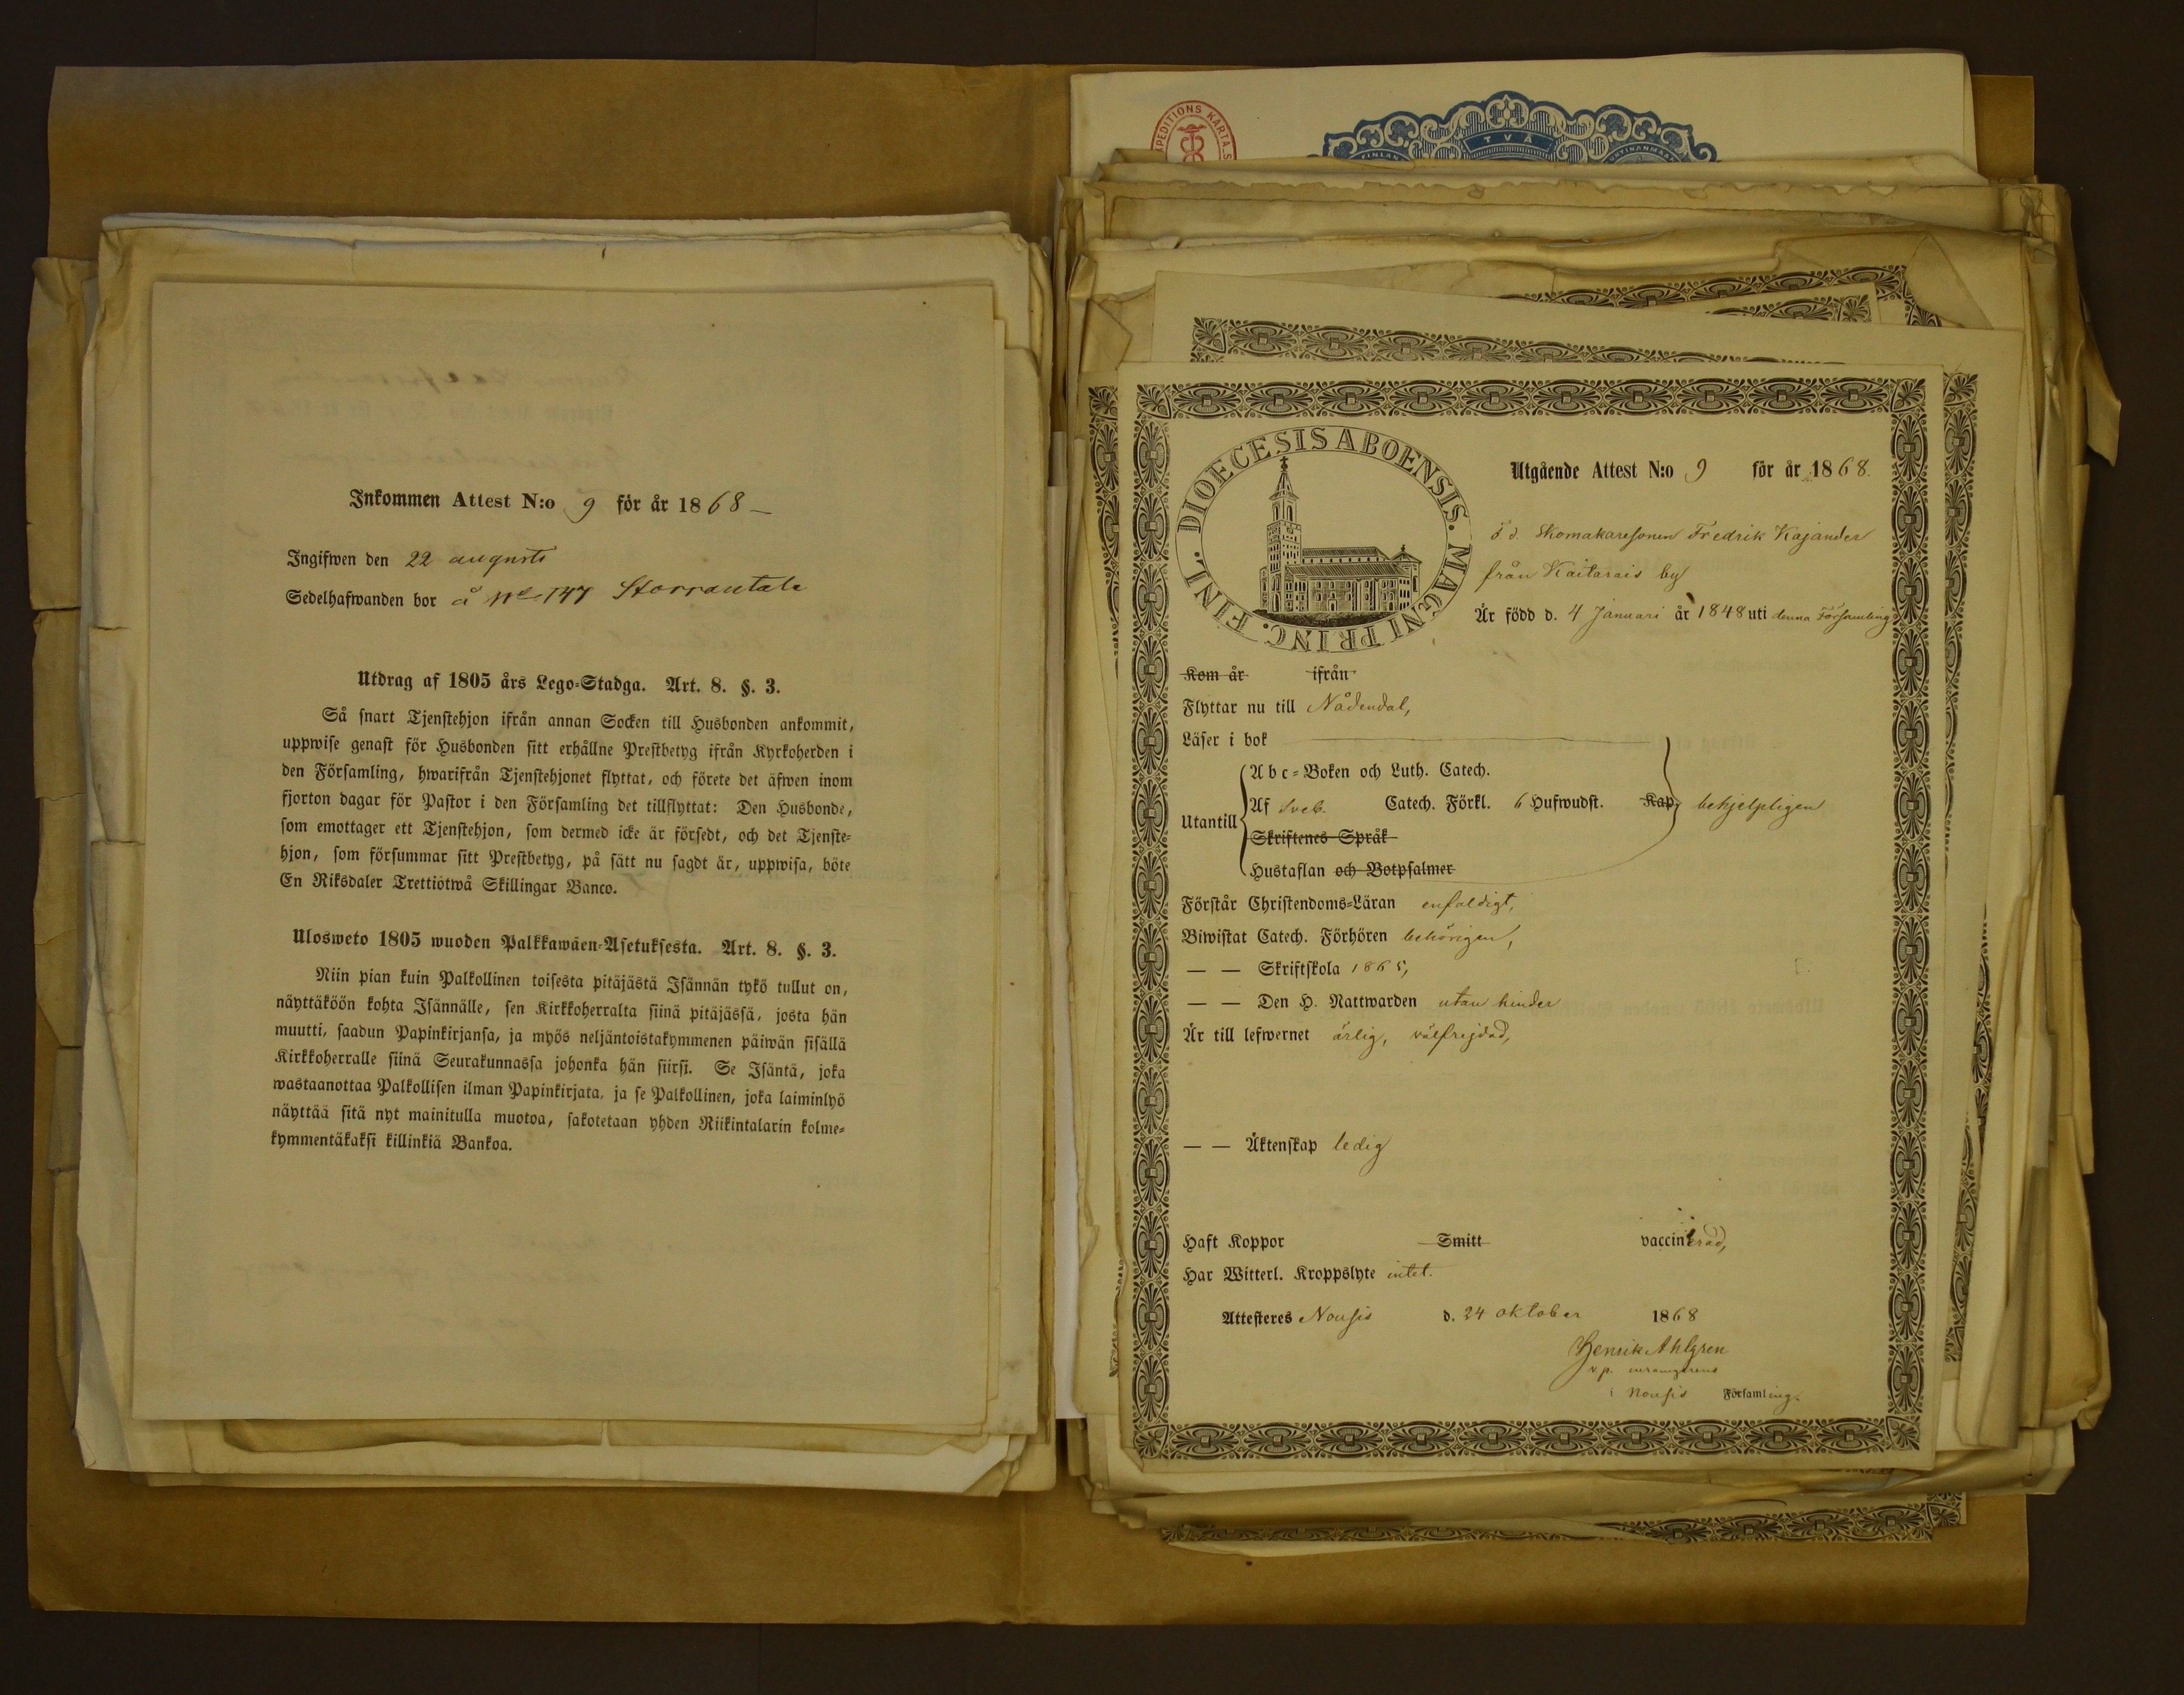 Inkommen Attest N:o 9 för år 1868
Ingifwen den 22 augusti
Sedelhafwanden bor å No 147 Storrantala
Utdrag af 1805 års Lego-Stadga. Art. 8. §. 3.
Så snart Tjenstehjon ifrån annan Socken till Husbonden ankommit,
uppwise genast för Husbonden sitt erhållne Prestbetyg ifrån Kyrkoherden i
den Församling, hwarifrån Tjenstehjonet flyttat, och förete det äfwen inom
fjorton dagar för Pastor i den Församling det tillflyttat: Den Husbonde,
som emottager ett Tjenstehjon, som dermed icke är försedt, och det Tjenste-
hjon, som försummar sitt Prestbetyg, på sätt nu sagdt är, uppwisa, böte
En Riksdaler Trettiotwå Skillingar Banco.
Ulosweto 1805 wuoden Palkkawäen-Asetuksesta. Art. 8. §. 3.
Niin pian kuin Palkollinen toisesta pitäjästä Isännän tykö tullut on,
näyttäköön kohta Isännälle, sen Kirkkoherralta siinä pitäjässä, josta hän
muutti, saadun Papinkirjansa, ja myös neljäntoistakymmenen päiwän sisällä
Kirkkoherralle siinä Seurakunnassa johonka hän siirsi. Se Isäntä, joka
wastaanottaa Palkollisen ilman Papinkirjata, ja se Palkollinen, joka laiminlyö
näyttää sitä nyt mainitulla muotoa, sakotetaan yhden Riikintalarin kolme-
kymmentäkaksi killinkiä Bankoa.
TVÅ
DIOECESIS ABOENSIS. MAGNI PRINC. FINL.
Utgående Attest N:o 9 för år 1868.
Skomakaresonen Fredrik Kajander
från Kaitarais by
Är född d. 4 Januari år 1848 uti denna Församling
Kom år ifrån
Flyttar nu till Nådendal,
Läser i bok
Utantill
Abc-Boken och Luth. Catech.
Af Sveb. Catech. Förkl. 6 Hufwudst. Kap. behjelpligen
Skriftenes Språk
Hustaflan och Botpsalmer
Förstår Christendoms-Läran enfaldigt,
Biwistat Catech. Förhören behörigen,
— — Skriftskola 1865,
— — Den H. Nattwarden utan hinder
Är till lefwernet ärlig, välfrejdad,
— — Äktenskap ledig
Haft Koppor Smitt vaccinerad,
Har Witterl. Kroppslyte intet.
Attesteres Nousis d. 24 oktober 1868
Henrik Ahlgren
v.p.
i Nousis Församling.